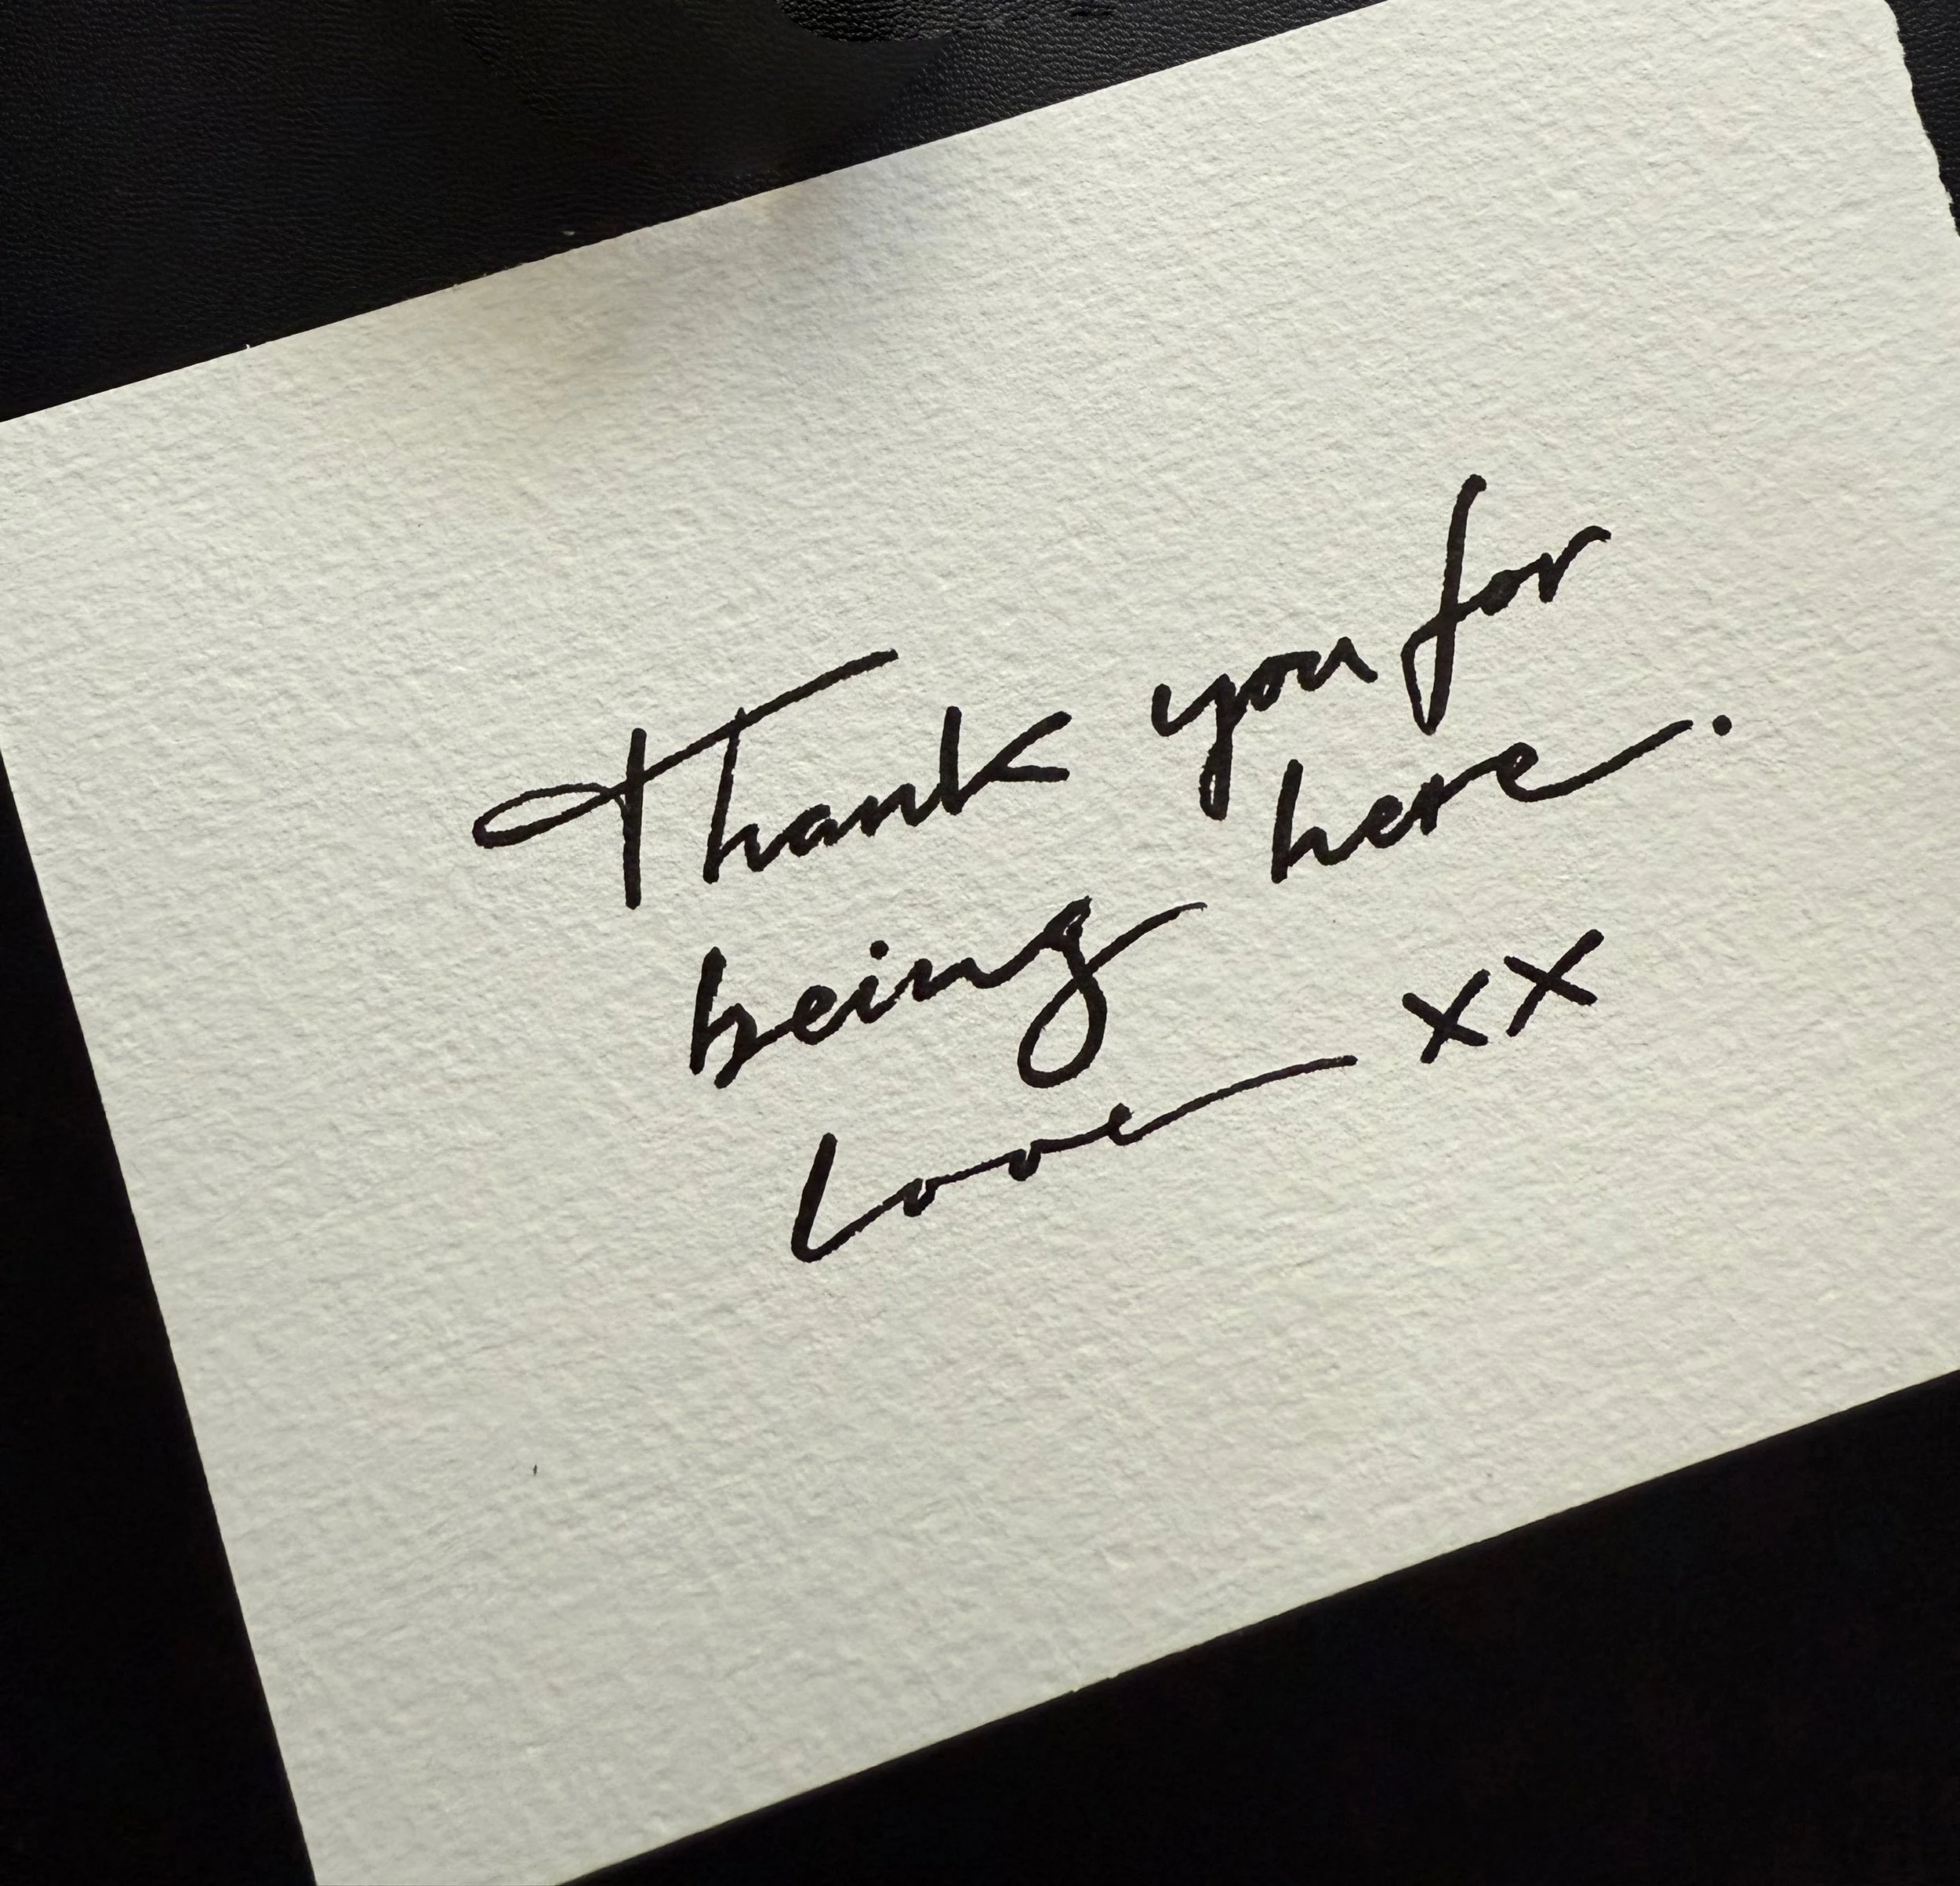 Thank you for
being here.
Love xx